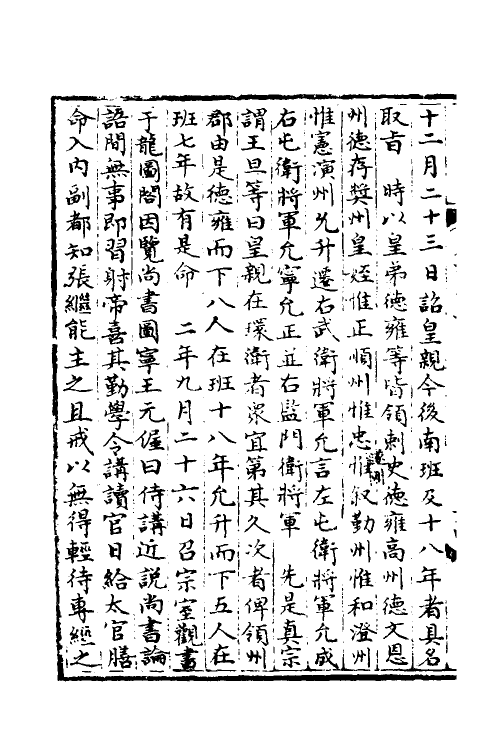 十二月二十三日詔皇親今後南班及十八年者具名
取旨　時以皇弟德雍等皆領刺史德雍高州德文恩
州德存奬州皇姪惟正順州惟忠惟叙勤州惟和澄州
惟憲演州允升遷右武衛將軍允言左屯衛將軍允成
右屯衛將軍允寧允正並右監門衛將軍　先是真宗
謂王旦等曰皇親在環衛者衆宜第其久次者俾領州
郡由是德雍而下八人在班十八年允升而下五人在
班七年故有是命　二年九月二十六日召宗室觀書
于龍圖閣因覽尚書圖寧王元偓曰侍講近說尚書論
語間無事即習射帝喜其勤學令講讀官日給太官膳
命入内副都知張繼能主之且戒以無得輕待專經之